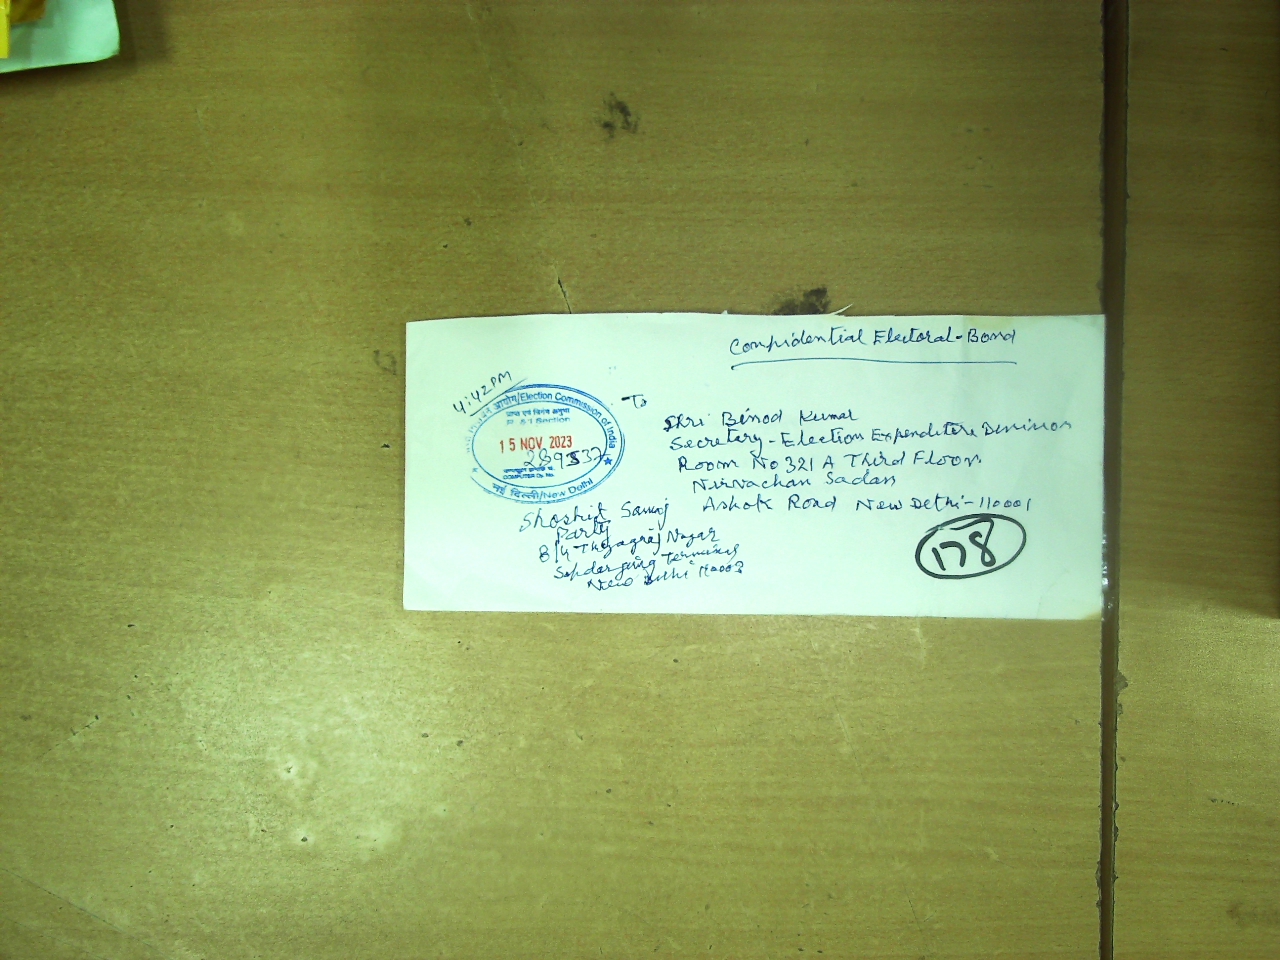 Confidential Electoral-Bond
4:42PM
आयोग/Election Commission of India
R & I Section
15 NOV. 2023
COMPUTER Dy. No.
नई दिल्ली/New Delhi
To
Shri Binod Kumar
Secretary-Election Expenditure Division
Room No 321 A Third Floor
Nirvachan Sadan
Ashok Road New Delhi-110001
Shoshit Samaj
Party
8/4-Thyagraj Nagar
New Delhi 110003
178